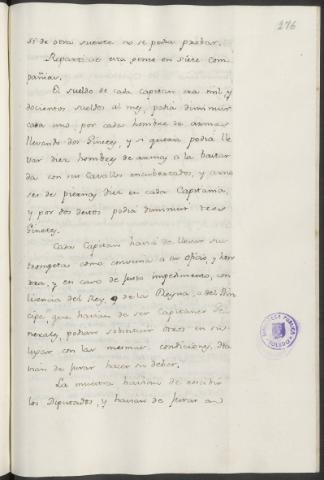 276
si de otra suerte no se podia probar.
Repartiose esta gente en siete com
pañias.
El sueldo de cada capitan era mil y
docientos sueldos al mes, podia diminuir
cada uno por cada hombre de armas
llevando dos Ginetes, y si queria podia lle
var diez hombres de armas a la bastar
da con sus Cavallos encubertados, y arne
ses de piernas diez en cada Capitania,
y por dos destos podia diminuir tres
Ginetes.
Cada Capitan havia de llevar su
trompeta como convenia a su oficio, y hon
rra, y en caso de justo impedimento, con
licencia del Rey, o de la Reyna, o del Prin
cipe que havian de ser Capitanes Ge
nerales, podian substituir otros en sus
lugares con las mesmas condiciones, Ha
vian de jurar hacer su deber.
La muestra havian de recibir
los Diputados, y havian de jurar an
BIBLIOTECA PUBLICA
TOLEDO